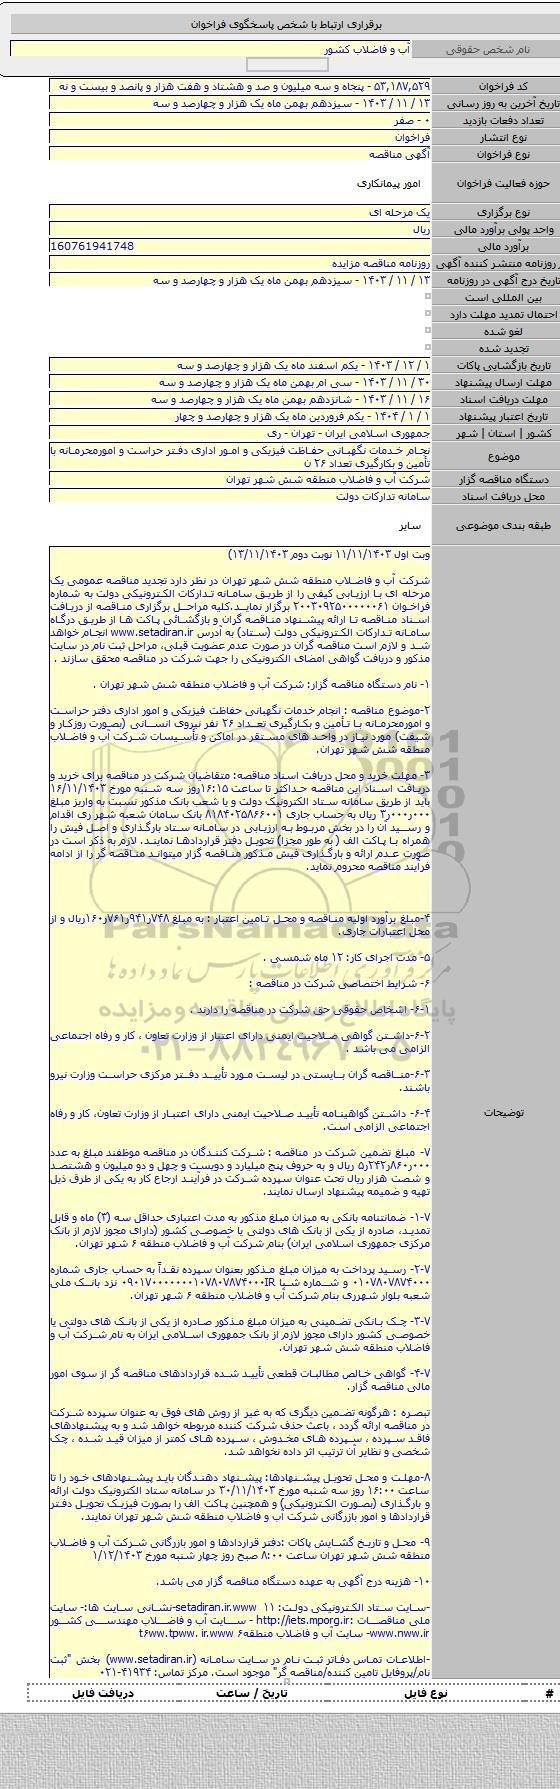 برقراری ارتباط با شخص پاسخگوی فراخوان
نام شخص حقوقی آب و فاضلاب کشور
کد فراخوان ۵۳,۱۸۷,۵۲۹ - پنجاه و سه میلیون و صد و هشتاد و هفت هزار و پانصد و بیست و نه
تاریخ آخرین به روز رسانی ۱۳ / ۱۱ / ۱۴۰۳ - سیزدهم بهمن ماه یک هزار و چهارصد و سه
تعداد دفعات بازدید ۰ - صفر
نوع انتشار فراخوان
نوع فراخوان آگهی مناقصه
حوزه فعالیت فراخوان امور پیمانکاری
نوع برگزاری یک مرحله ای
واحد پولی برآورد مالی ریال
برآورد مالی 160761941748
روزنامه منتشر کننده آگهی روزنامه مناقصه مزایده
تاریخ درج آگهی در روزنامه ۱۳ / ۱۱ / ۱۴۰۳ - سیزدهم بهمن ماه یک هزار و چهارصد و سه
بین المللی است
احتمال تمدید مهلت دارد
لغو شده
تجدید شده
تاریخ بازگشایی پاکات ۱ / ۱۲ / ۱۴۰۳ - یکم اسفند ماه یک هزار و چهارصد و سه
مهلت ارسال پیشنهاد ۳۰ / ۱۱ / ۱۴۰۳ - سی ام بهمن ماه یک هزار و چهارصد و سه
مهلت دریافت اسناد ۱۶ / ۱۱ / ۱۴۰۳ - شانزدهم بهمن ماه یک هزار و چهارصد و سه
تاریخ اعتبار پیشنهاد ۱ / ۱ / ۱۴۰۴ - یکم فروردین ماه یک هزار و چهارصد و چهار
کشور | استان | شهر جمهوری اسلامی ایران - تهران - ری
موضوع انجام خدمات نگهبانی حفاظت فیزیکی و امور اداری دفتر حراست و امورمحرمانه با
تأمین و بکارگیری تعداد ۲۶ ن
دستگاه مناقصه گزار شرکت آب و فاضلاب منطقه شش شهر تهران
محل دریافت اسناد سامانه تدارکات دولت
طبقه بندی موضوعی سایر
توضیحات
وبت اول ۱۱/۱۱/۱۴۰۳ نوبت دوم ۱۳/۱۱/۱۴۰۳)
شرکت آب و فاضلاب منطقه شش شهر تهران در نظر دارد تجدید مناقصه عمومی یک
مرحله ای با ارزیابی کیفی را از طریق سامانه تدارکات الکترونیکی دولت به شماره
فراخوان ۲۰۰۳۰۹۲۵۰۰۰۰۰۰۶۱ برگزار نماید.کلیه مراحل برگزاری مناقصه از دریافت
اسناد مناقصه تا ارائه پیشنهاد مناقصه گران و بازگشائی پاکت ها از طریق درگاه
سامانه تدارکات الکترونیکی دولت (ستاد) به آدرس www.setadiran.ir انجام خواهد
شد و لازم است مناقصه گران در صورت عدم عضویت قبلی، مراحل ثبت نام در سایت
مذکور و دریافت گواهی امضای الکترونیکی را جهت شرکت در مناقصه محقق سازند .
۱- نام دستگاه مناقصه گزار: شرکت آب و فاضلاب منطقه شش شهر تهران .
۲-موضوع مناقصه : انجام خدمات نگهبانی حفاظت فیزیکی و امور اداری دفتر حراست
و امورمحرمانه با تأمین و بکارگیری تعداد ۲۶ نفر نیروی انسانی (بصورت روزکار و
شیفت) مورد نیاز در واحد های مستقر در اماکن و تأسیسات شرکت آب و فاضلاب
منطقه شش شهر تهران.
۳- مهلت خرید و محل دریافت اسناد مناقصه: متقاضیان شرکت در مناقصه برای خرید و
دریافت اسناد این مناقصه حداکثر تا ساعت ۱۶:۱۵روز سه شنبه مورخ ۱۶/۱۱/۱۴۰۳
باید از طریق سامانه ستاد الکترونیک دولت و یا شعب بانک مذکور نسبت به واریز مبلغ
۰۰۰ر۰۰۰ر۳ ریال به حساب جاری ۸۱۸۴۰۲۵۸۶۶۰۰۱ بانک سامان شعبه شهر ری اقدام
و رسید آن را در بخش مربوط به ارزیابی در سامانه ستاد بارگذاری و اصل فیش را
همراه با پاکت الف ( به طور مجزا) تحویل دفتر قراردادها نمایند. لازم به ذکر است در
صورت عدم ارائه و بارگذاری فیش مذکور مناقصه گزار میتواند مناقصه گر را از ادامه
فرآیند مناقصه محروم نماید.
۴-مبلغ برآورد اولیه مناقصه و محل تامین اعتبار : به مبلغ ۷۴۸ر۹۴۱ر۷۶۱ر۱۶۰ریال و از
محل اعتبارات جاری.
۵- مدت اجرای کار: ۱۲ ماه شمسی .
۶- شرایط اختصاصی شرکت در مناقصه :
۶-۱- اشخاص حقوقی حق شرکت در مناقصه را دارند .
۶-۲-داشتن گواهی صلاحیت ایمنی دارای اعتبار از وزارت تعاون ، کار و رفاه اجتماعی
الزامی می باشد .
۶-۳-مناقصه گران بایستی در لیست مورد تأیید دفتر مرکزی حراست وزارت نیرو
باشند.
۶-۴- داشتن گواهینامه تأیید صلاحیت ایمنی دارای اعتبار از وزارت تعاون، کار و رفاه
اجتماعی الزامی است.
۷- مبلغ تضمین شرکت در مناقصه : شرکت کنندگان در مناقصه موظفند مبلغ به عدد
۰۰۰ر۸۶۰ر۲۴۲ر۵ ریال و به حروف پنج میلیارد و دویست و چهل و دو میلیون و هشتصد
و شصت هزار ریال تحت عنوان سپرده شرکت در فرآیند ارجاع کار به یکی از طرق ذیل
تهیه و ضمیمه پیشنهاد ارسال نمایند.
۷-۱- ضمانتنامه بانکی به میزان مبلغ مذکور به مدت اعتباری حداقل سه (۳) ماه و قابل
تمدید، صادره از یکی از بانک های دولتی یا خصوصی کشور (دارای مجوز لازم از بانک
مرکزی جمهوری اسلامی ایران) بنام شرکت آب و فاضلاب منطقه ۶ شهر تهران.
۷-۲- رسید پرداخت به میزان مبلغ مذکور بعنوان سپرده نقداً به حساب جاری شماره
۰۱۰۷۸۰۷۸۷۴۰۰۰ و شماره شبا IR۰۹۰۱۷۰۰۰۰۰۰۰۱۰۷۸۰۷۸۷۴۰۰۰ نزد بانک ملی
شعبه بلوار شهرری بنام شرکت آب و فاضلاب منطقه ۶ شهر تهران.
۷-۳- چک بانکی تضمینی به میزان مبلغ مذکور صادره از یکی از بانک های دولتی یا
خصوصی کشور دارای مجوز لازم از بانک جمهوری اسلامی ایران به نام شرکت آب و
فاضلاب منطقه شش شهر تهران.
۷-۴- گواهی خالص مطالبات قطعی تأیید شده قراردادهای مناقصه گر از سوی امور
مالی مناقصه گزار.
تبصره : هرگونه تضمین دیگری که به غیر از روش های فوق به عنوان سپرده شرکت
در مناقصه ارائه گردد ، باعث حذف شرکت کننده مربوطه خواهد شد و به پیشنهادهای
فاقد سپرده ، سپرده های مخدوش ، سپرده های کمتر از میزان قید شده ، چک
شخصی و نظایر آن ترتیب اثر داده نخواهد شد.
۸-مهلت و محل تحویل پیشنهادها: پیشنهاد دهندگان باید پیشنهادهای خود را تا
ساعت ۱۶:۰۰ روز سه شنبه مورخ ۳۰/۱۱/۱۴۰۳ در سامانه ستاد الکترونیک دولت ارائه
و بارگذاری (بصورت الکترونیکی) و همچنین پاکت الف را بصورت فیزیک تحویل دفتر
قراردادها و امور بازرگانی شرکت آب و فاضلاب منطقه شش شهر تهران نمایند.
۹- محل و تاریخ گشایش پاکات :دفتر قراردادها و امور بازرگانی شرکت آب و فاضلاب
منطقه شش شهر تهران ساعت ۸:۰۰ صبح روز چهار شنبه مورخ ۱/۱۲/۱۴۰۳
۱۰- هزینه درج آگهی به عهده دستگاه مناقصه گزار می باشد.
-سایت ستاد الکترونیکی دولت: ۱۱ setadiran.ir.www-نشانی سایت ها:- سایت
ملی مناقصات :http://iets.mporg.ir - سایت آب و فاضلاب مهندسی کشور
www.nww.ir- سایت آب و فاضلاب منطقه۶ t۶ww.tpww. ir.www
-اطلاعات تماس دفاتر ثبت نام در سایت سامانه (www.setadiran.ir) بخش "ثبت
نام/پروفایل تامین کننده/مناقصه گر" موجود است. مرکز تماس: ۴۱۹۳۴-۰۲۱
# نوع فایل تاریخ / ساعت دریافت فایل
ParsNamadData
مرکز فرآوری اطلاعات پارس نماد داده ها
پایگاه اطلاع رسانی مناقصه و مزایده
۰۲۱-۸۸۳۴۹۶۷۰-۵